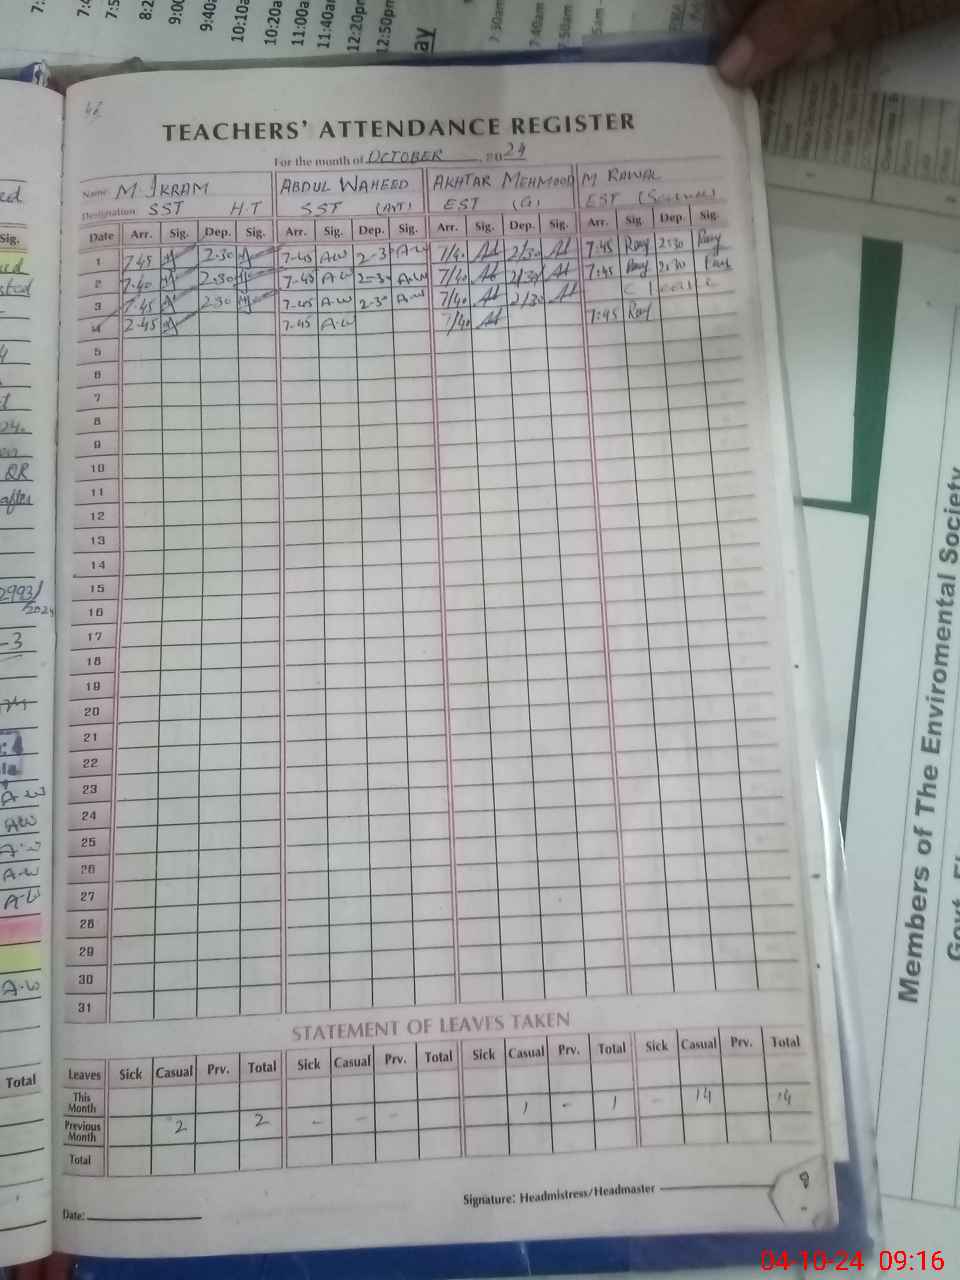 42
TEACHERS' ATTENDANCE REGISTER
For the month of OCTOBER 2024
Name M. IKRAM ABDUL WAHEED AKHTAR MEHMOOD M RAWAL
Designation SST H.T SST (ART) EST (G) EST
Date Arr. Sig. Dep. Sig. Arr. Sig. Dep. Sig. Arr. Sig. Dep. Sig. Arr. Sig. Dep. Sig.
1 7.45 2.30 7-45 A.W 2-30 A-W 7/40 2/30 7:45 2:30
2 7.40 2.30 7-45 A.W 2-30 A.W 7/40 2/30 7:45 2:30
3 7.45 2.30 7-45 A.W 2-30 A.W 7/40 2/30 C leave
4 7-45 A-W 7/40 7:45
5
6
7
8
9
10
11
12
13
14
15
16
17
18
19
20
21
22
23
24
25
26
27
28
29
30
31
STATEMENT OF LEAVES TAKEN
Leaves Sick Casual Prv. Total Sick Casual Prv. Total Sick Casual Prv. Total Sick Casual Prv. Total
This Month
Previous Month 2 2 - - - 1 - 1 - 14 14
Total
Signature: Headmistress/Headmaster
Date:
Sig.
after
2993/
2024
-3
A-W
AW
A-W
A-W
A-W
A-W
Total
7:30am
7:40am
7:50am
10:10am
10:20am
11:00am
11:40am
12:20pm
12:50pm
Members of The Enviromental Society
Govt.
04-10-24 09:16